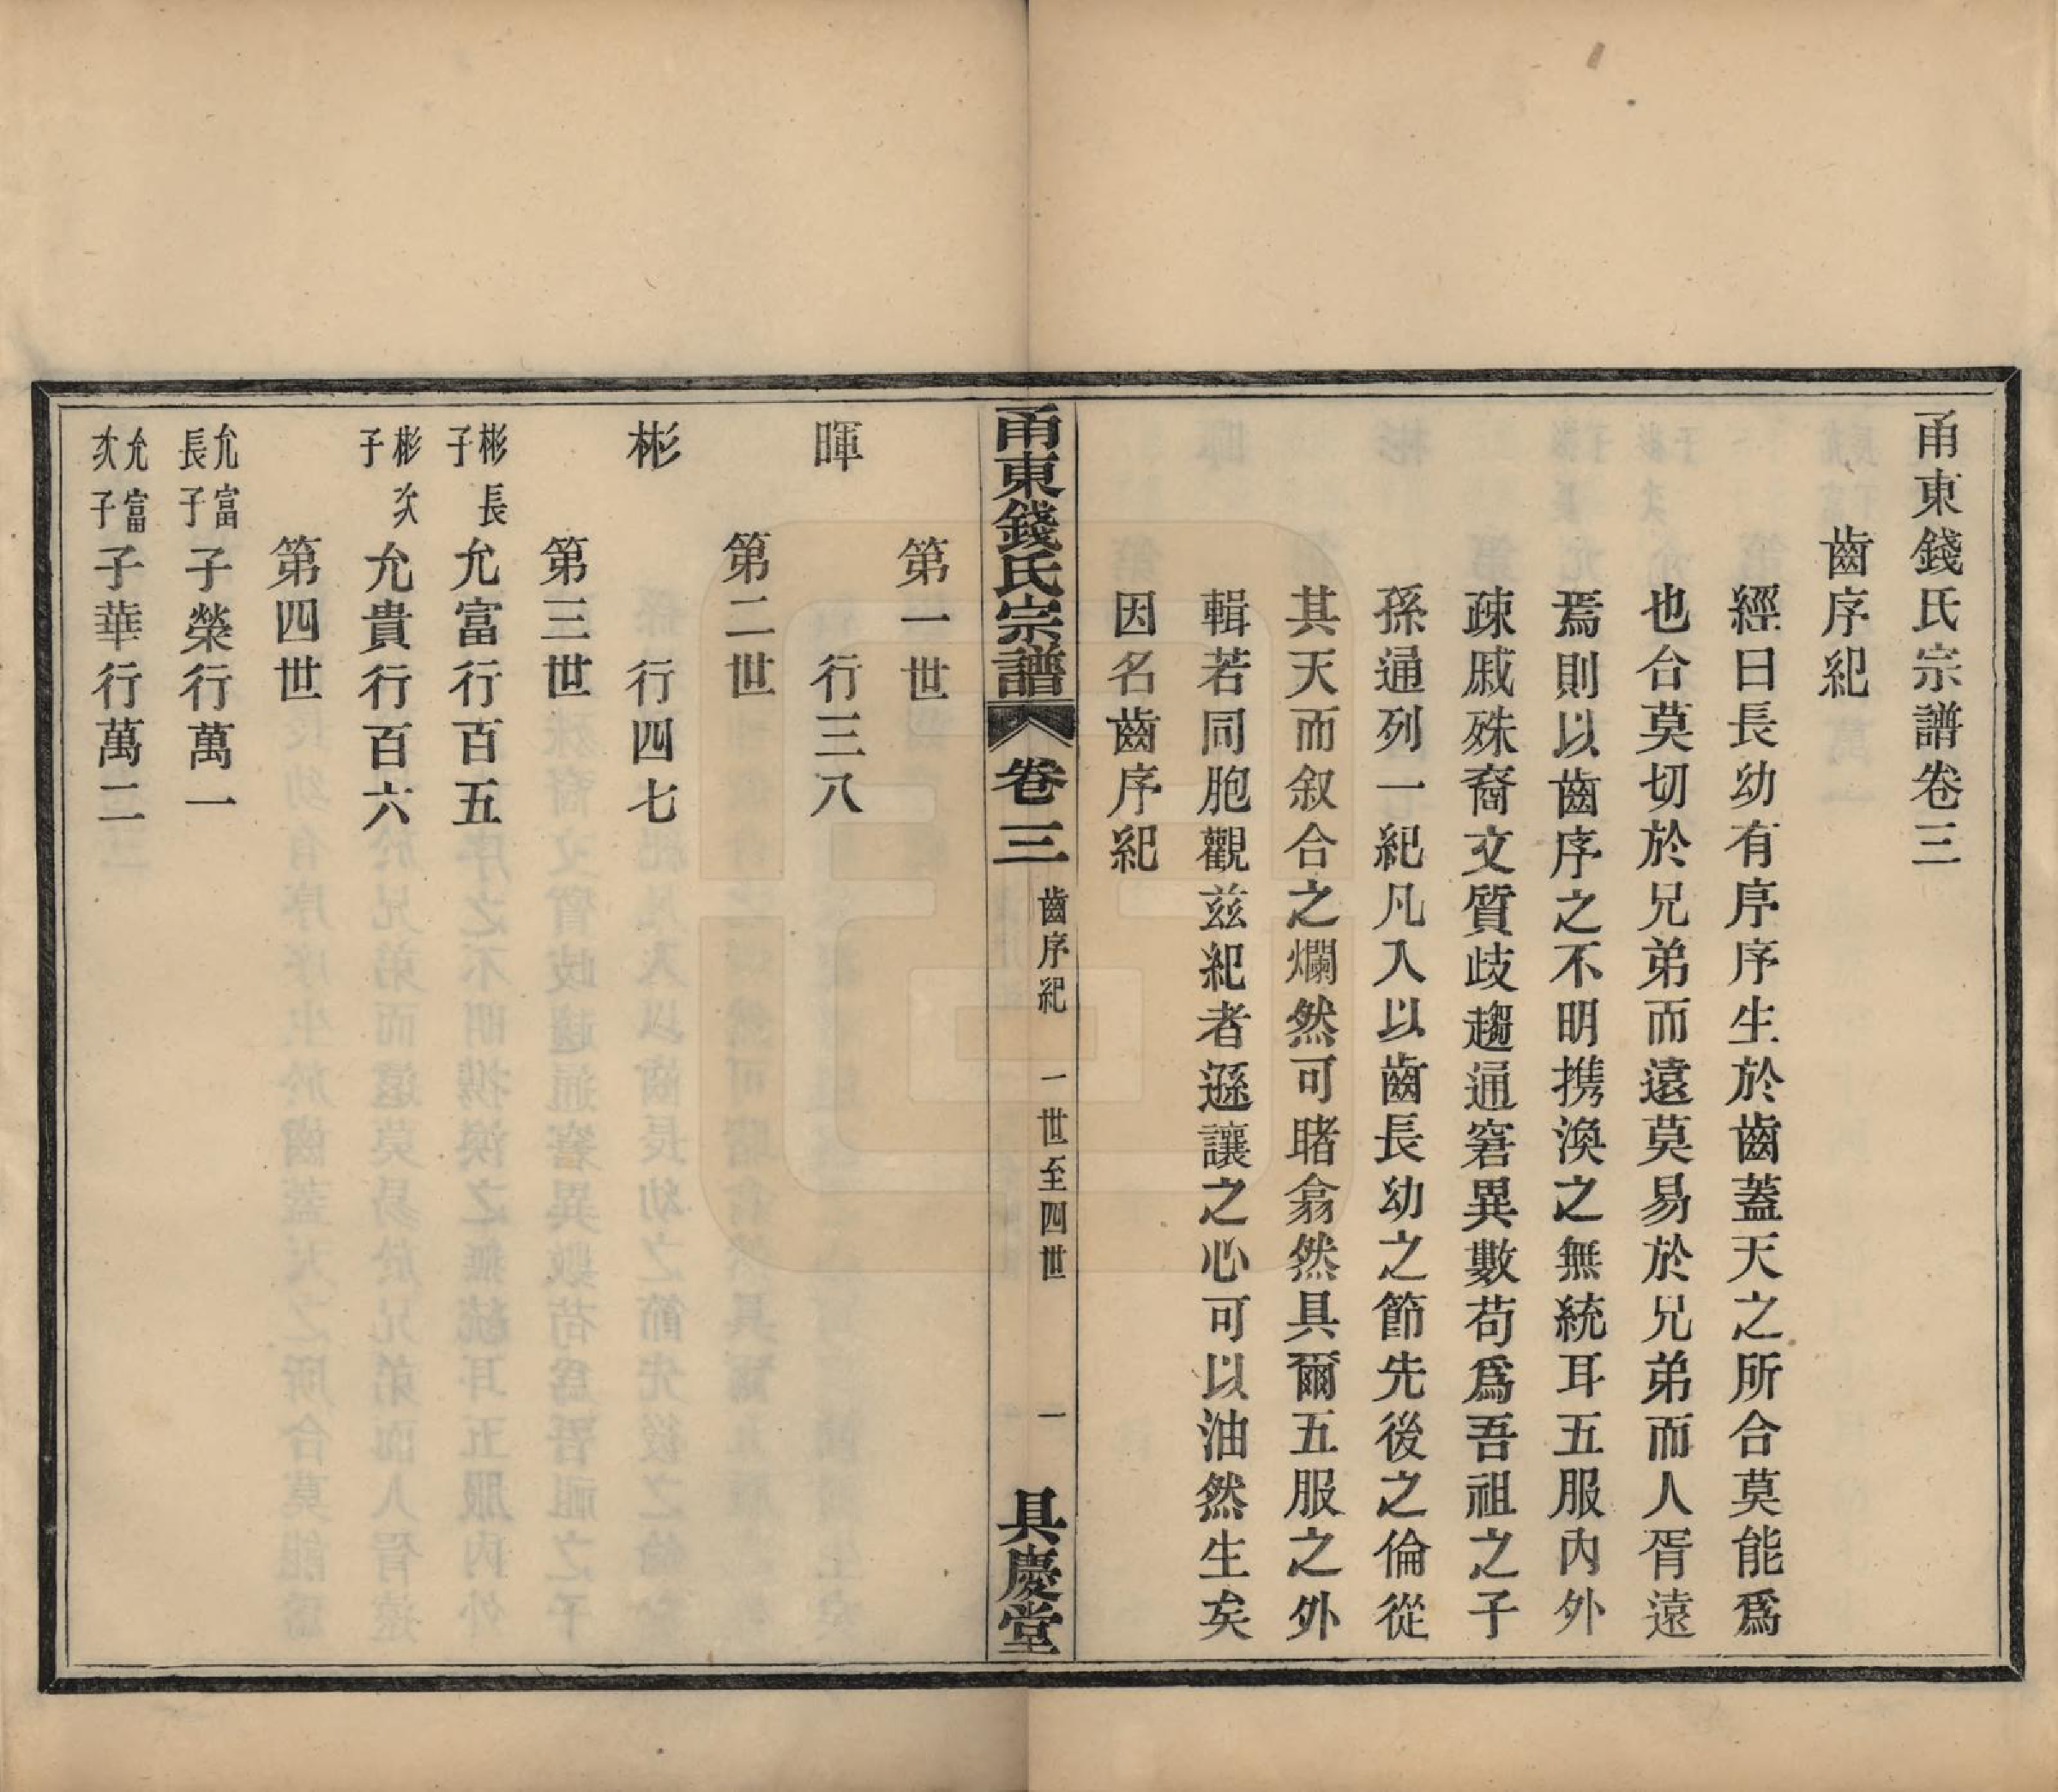 甬東錢氏宗譜卷三
齒序紀
經曰長幼有序序生於齒蓋天之所合莫能爲
也台莫切於兄弟而遠莫易於兄弟而人胥遠
焉則以齒序之不明攜渙之無統耳五服內外
疎戚殊裔文質歧趨通窘異數苟爲吾祖之子
孫通列一紀凡入以齒長幼之節先後之倫從
其天而叙合之爛然可睹翕然具爾五服之外
輯若同胞觀兹紀者遜讓之心可以油然生矣
因名齒序紀
甬東錢氏宗譜 卷三 齒序紀 一世至四世 一 具慶堂
第一世
暉 行三八
第二世
彬 行四七
第三世
彬長子 允富行百五
彬次子 允貴行百六
第四世
允富長子 子榮行萬一
允富次子 子華行萬二